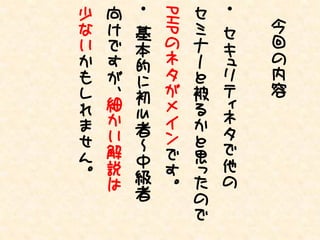 今回の内容
• セキュリティネタで他の
セミナーと被るかと思ったので
PHPのネタがメインです。
• 基本的に初心者～中級者
向けですが、細かい解説は
少ないかもしれません。